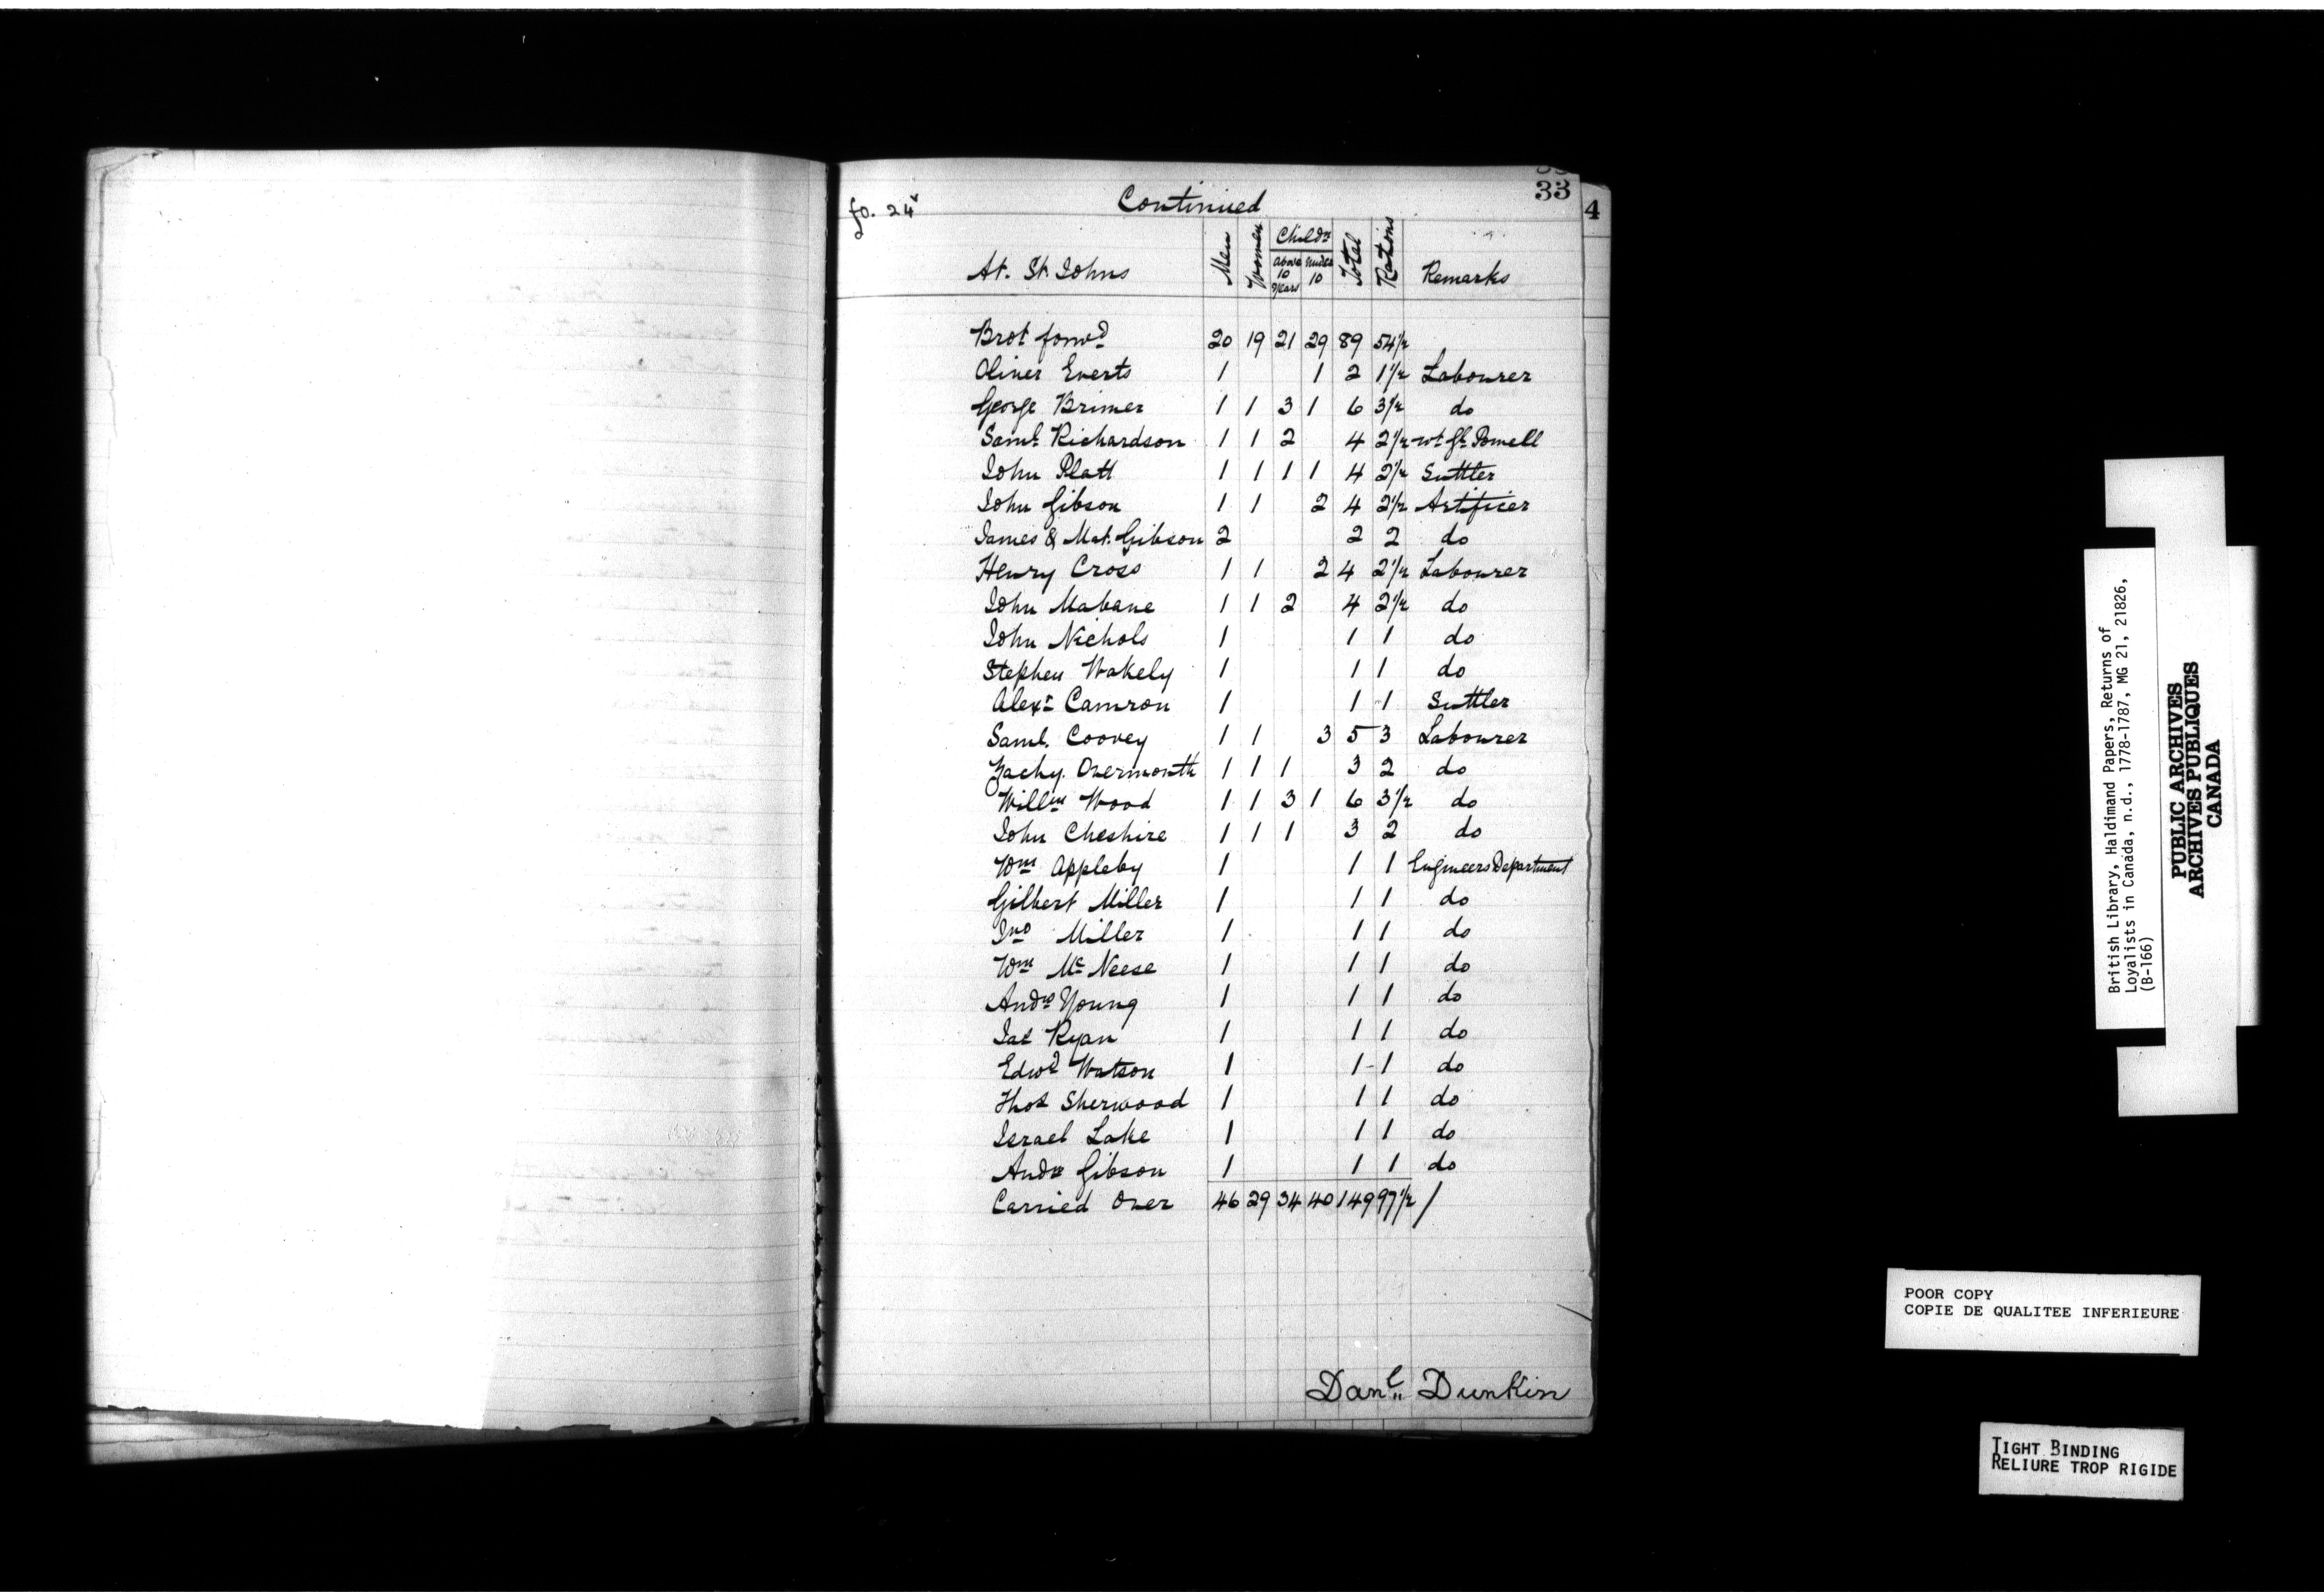 33
4
fo. 24v
Continued
At. St. Johns Men Women Childn Above 10 years Under 10 Total Rations Remarks
Brot forwd 20 19 21 29 89 54 1/2
Oliver Everts 1 1 2 1 1/2 Labourer
George Brimer 1 1 3 1 6 3 1/2 do
Saml Richardson 1 1 2 4 2 1/2 wt Gl Powell
John Platt 1 1 1 1 4 2 1/2 Suttler
John Gibson 1 1 2 4 2 1/2 Artificer
James & Mat. Gibson 2 2 2 do
Henry Cross 1 1 2 4 2 1/2 Labourer
John Mabane 1 1 2 4 2 1/2 do
John Nichols 1 1 1 do
Stephen Wakely 1 1 1 do
Alexr Camron 1 1 1 Suttler
Saml. Coovey 1 1 3 5 3 Labourer
Zachy. Overmonth 1 1 1 3 2 do
Willm Wood 1 1 3 1 6 3 1/2 do
John Cheshire 1 1 1 3 2 do
Wm Appleby 1 1 1 Engineers Department
Gilbert Miller 1 1 1 do
Jno Miller 1 1 1 do
Wm Mc Neese 1 1 1 do
Andw Young 1 1 1 do
Jas Ryan 1 1 1 do
Edwd Watson 1 1 1 do
Thos Sherwood 1 1 1 do
Israel Lake 1 1 1 do
Andw Gibson 1 1 1 do
Carried Over 46 29 34 40 149 97 1/2 /
Danl Dunkin
British Library, Haldimand Papers, Returns of
Loyalists in Canada, n.d., 1778-1787, MG 21, 21826,
(B-166)
PUBLIC ARCHIVES
ARCHIVES PUBLIQUES
CANADA
POOR COPY
COPIE DE QUALITEE INFERIEURE
TIGHT BINDING
RELIURE TROP RIGIDE